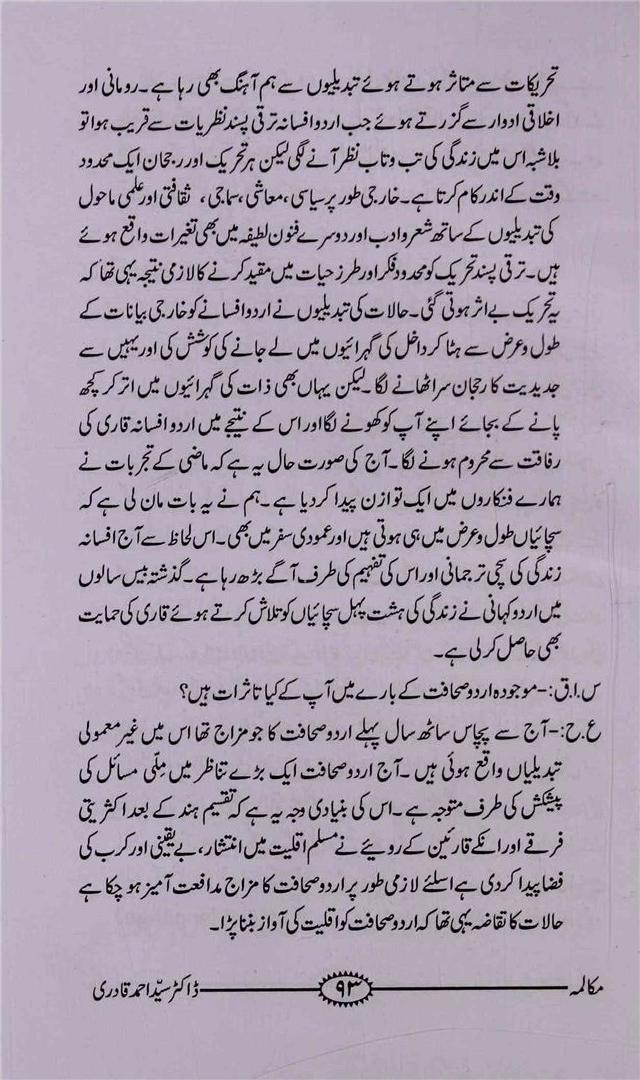 تحریکات سے متاثر ہوتے ہوئے تبدیلیوں سے ہم آہنگ بھی رہا ہے۔ رومانی اور
اخلاقی ادوار سے گزرتے ہوئے جب اردو افسانہ ترقی پسند نظریات سے قریب ہوا تو
بلا شبہ اس میں زندگی کی تب وتاب نظر آنے لگی لیکن ہر تحریک اور رجحان ایک محدود
وقت کے اندر کام کرتا ہے۔ خارجی طور پر سیاسی، معاشی، سماجی، ثقافتی اور علمی ماحول
کی تبدیلیوں کے ساتھ شعر و ادب اور دوسرے فنون لطیفہ میں بھی تغیرات واقع ہوئے
ہیں۔ ترقی پسند تحریک کو محدود فکر اور طرز حیات میں مقید کرنے کا لازمی نتیجہ یہی تھا کہ
یہ تحریک بے اثر ہوتی گئی۔ حالات کی تبدیلیوں نے اردو افسانے کو خارجی بیانات کے
طول و عرض سے ہٹا کر داخل کی گہرائیوں میں لے جانے کی کوشش کی اور یہیں سے
جدیدیت کا رجحان سر اٹھانے لگا۔ لیکن یہاں بھی ذات کی گہرائیوں میں اتر کر کچھ
پانے کے بجائے اپنے آپ کو کھونے لگا اور اس کے نتیجے میں اردو افسانہ قاری کی
رفاقت سے محروم ہونے لگا۔ آج کی صورت حال یہ ہے کہ ماضی کے تجربات نے
ہمارے فنکاروں میں ایک توازن پیدا کر دیا ہے۔ ہم نے یہ بات مان لی ہے کہ
سچائیاں طول و عرض میں ہی ہوتی ہیں اور عمودی سفر میں بھی۔ اس لحاظ سے آج افسانہ
زندگی کی سچی ترجمانی اور اس کی تفہیم کی طرف آگے بڑھ رہا ہے۔ گذشتہ بیس سالوں
میں اردو کہانی نے زندگی کی ہشت پہل سچائیاں کو تلاش کرتے ہوئے قاری کی حمایت
بھی حاصل کر لی ہے۔
س.ا.ق:- موجودہ اردو صحافت کے بارے میں آپ کے کیا تاثرات ہیں؟
ع.ح:- آج سے پچاس ساٹھ سال پہلے اردو صحافت کا جو مزاج تھا اس میں غیر معمولی
تبدیلیاں واقع ہوئی ہیں۔ آج اردو صحافت ایک بڑے تناظر میں ملّی مسائل کی
پیشکش کی طرف متوجہ ہے۔ اس کی بنیادی وجہ یہ ہے کہ تقسیم ہند کے بعد اکثریتی
فرقے اور انکے قارئین کے رویئے نے مسلم اقلیت میں انتشار، بے یقینی اور کرب کی
فضا پیدا کر دی ہے اسلئے لازمی طور پر اردو صحافت کا مزاج مدافعت آمیز ہو چکا ہے
حالات کا تقاضہ یہی تھا کہ اردو صحافت کو اقلیت کی آواز بننا پڑا۔
مکالمہ ۹۳ ڈاکٹر سیّد احمد قادری